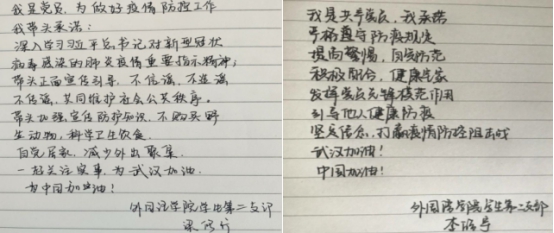 我是党员，为做好疫情防控工作
我带头承诺：
深入学习习近平总书记对新型冠状
病毒感染的肺炎疫情重要指示精神；
带头正面宣传引导，不信谣，不造谣
不传谣，共同维护社会公共秩序。
带头加强宣传防护知识，不购买野
生动物，科学卫生饮食。
自觉居家，减少外出聚集。
一起关注实事，为武汉加油，
为中国加油！
外国语学院学生第二支部
我是共产党员，我承诺
严格遵守防疫规定
提高警惕，自我防范
积极配合，健康生家
发挥党员先锋模范作用
引导他人健康防疫
坚定信念，打赢疫情防控阻击战
武汉加油！
中国加油！
外国语学院学生第二支部